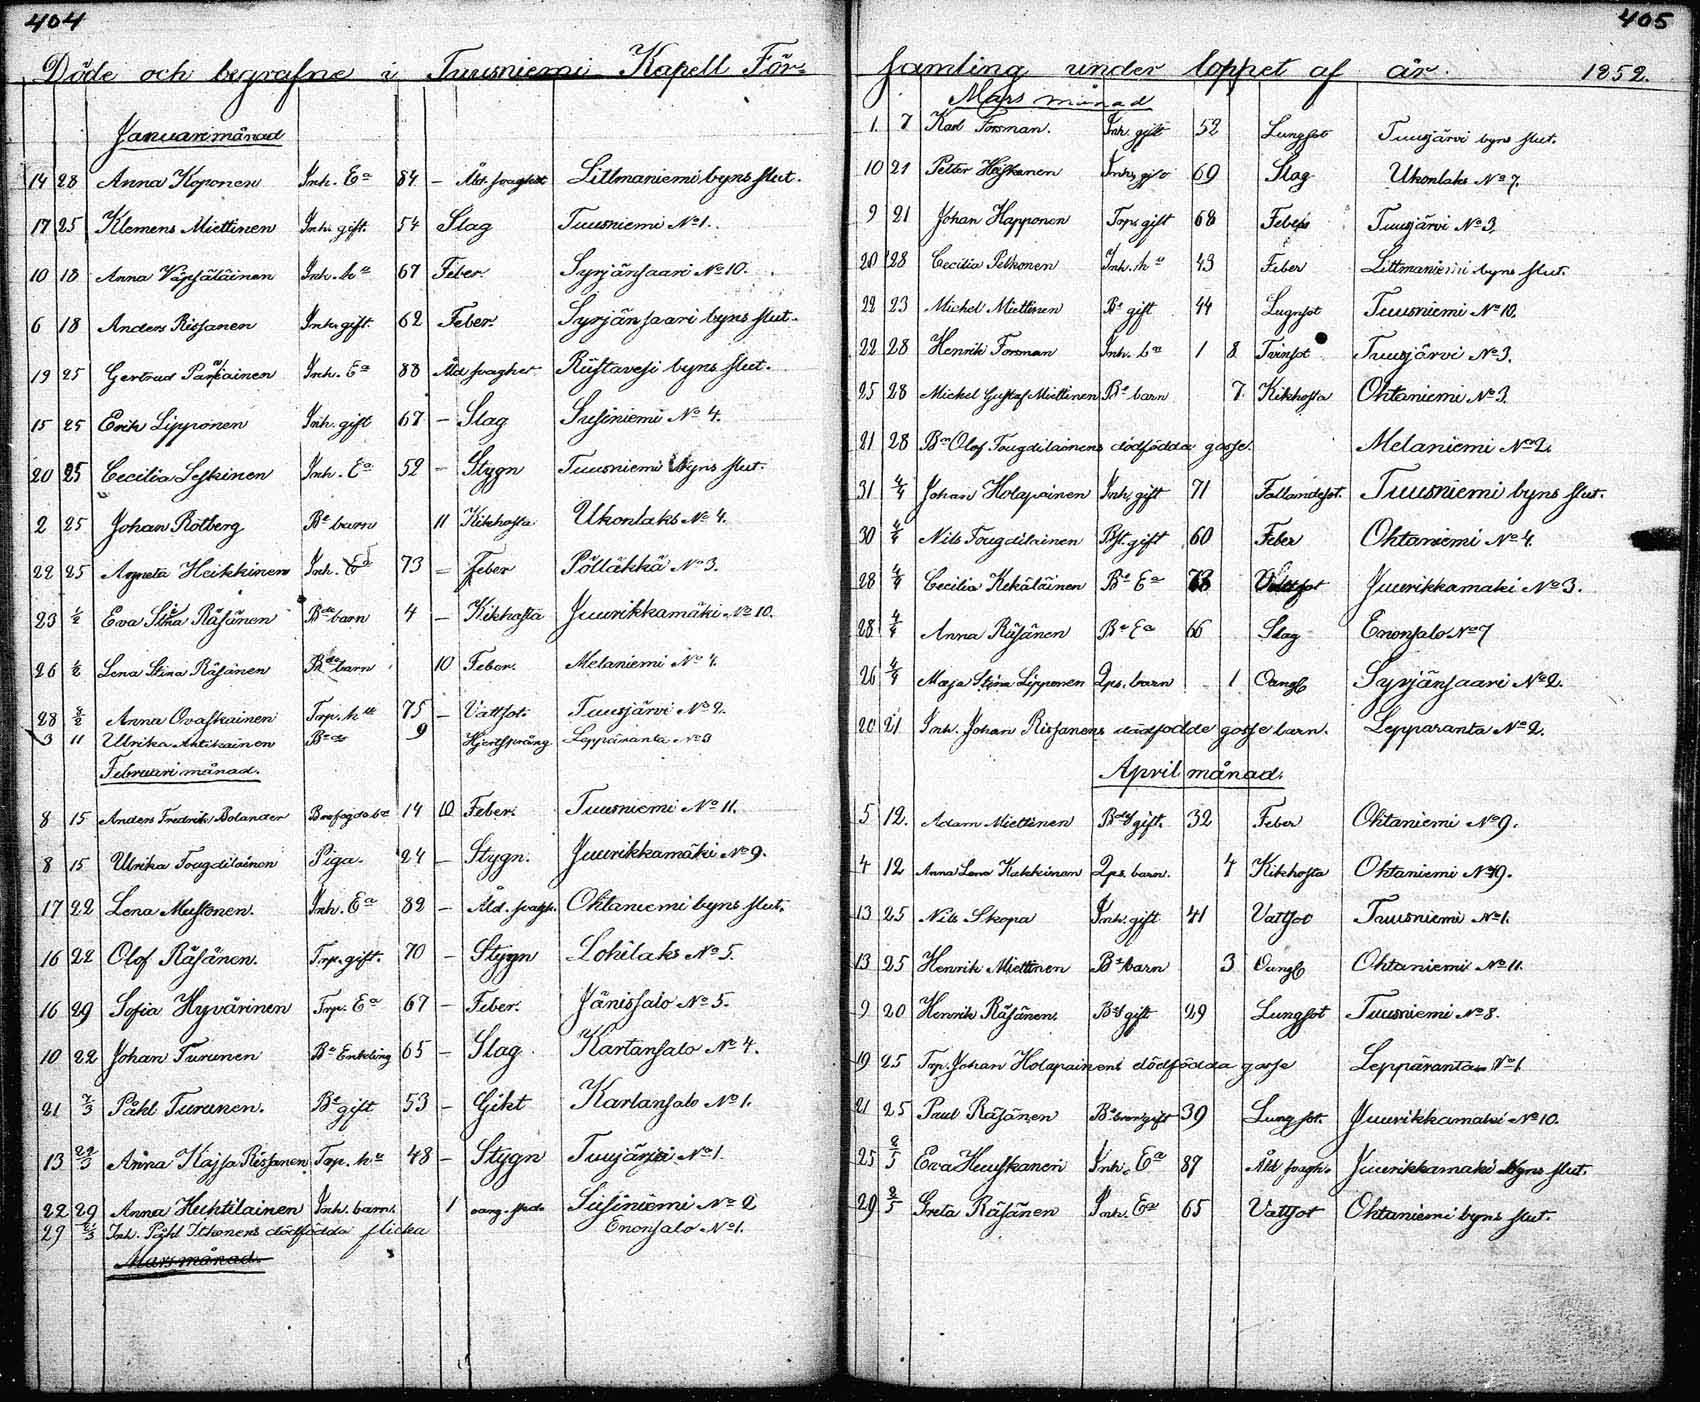 404
Döde och begrafne i Tuusniemi Kapell För-
Januari månad
14 28 Anna Koponen Inh. Ea 84 – Åld. svaghet Littmaniemi byns slut.
17 25 Klemens Miettinen Inh. gift. 54 Slag Tuusniemi No 1.
10 18 Anna Väpsäläinen Inh. hu 67 Feber Syrjänsaari No 10.
6 18 Anders Rissanen Inh. gift. 62 Feber. Syrjänsaari byns slut.
19 25 Gertrud Parsiainen Inh. Ea 88 Åld svaghet Riistavesi byns slut.
15 25 Erik Lipponen Inh. gift 67 – Slag Susiniemi No 4.
20 25 Cecilia Leskinen Inh. Ea 52 – Stygn Tuusniemi byns slut.
2 25 Johan Rotberg Be barn 11 Kikhosta Ukonlaks No 4.
22 25 Agneta Heikkinen Inh. Ea 73 – Feber Pölläkkä No 3.
23 1/2 Eva Stina Räsänen Bde barn 4 – Kikhosta Juurikkamäki No 10.
26 1/2 Lena Stina Räsänen Bde barn 10 Feber. Melaniemi No 4.
28 8/2 Anna Ovaskainen Trp. hu 75 – Vattsot. Tuusjärvi No 2.
3 11 Ulrika Antikainen Be dr 9 Hjertsprång Leppäranta No 3
Februari månad.
8 15 Anders Fredrik Bolander Brofogde bn 14 10 Feber. Tuusniemi No 11.
8 15 Ulrika Tougdilainen Piga. 24 – Stygn. Juurikkamäki No 9.
17 22 Lena Mustonen. Inh. Ea 82 – Åld. svagh. Ohtaniemi byns slut.
16 22 Olof Räsänen. Trp. gift. 70 – Stygn Lohilaks No 5.
16 29 Sofia Hyvärinen Trp. Ea 67 – Feber. Jänissalo No 5.
10 22 Johan Turunen Be Enkeling 65 – Slag Kartansalo No 4.
21 7/3 Påhl Turunen. Be gift 53 – Gikt Kartansalo No 1.
13 22/3 Anna Kajsa Rissanen Trp. hu 48 – Stygn Tuusjärvi No 1.
22 29 Anna Huhtilainen Inh. barn. 1 oang. sjukd. Susiniemi No 2
29 21/3 Inh. Påhl Itkonens dödfödda flicka Enonsalo No 1.
Mars månad.
405
samling under loppet af år. 1852.
Mars månad
1. 7 Karl Forsman. Inh. gift 52 Lungsot Tuusjärvi byns slut.
10 21 Petter Heiskanen Inh. gift 69 Slag Ukonlaks No 7.
9 21 Johan Happonen Trp. gift 68 Feber Tuusjärvi No 3.
20 28 Cecilia Pekkonen Inh. hu 43 Feber Littmaniemi byns slut.
22 23 Michel Miettinen Be gift 44 Lugnsot Tuusniemi No 10.
22 28 Henrik Forsman Inh. bn 1 8 Tvinsot Tuusjärvi No 3.
25 28 Michel Gustaf Miettinen Be barn 7 Kikhosta Ohtaniemi No 3.
21 28 Bn Olof Tougdilainens dödfödda gosse. Melaniemi No 2.
31 4/4 Johan Holapainen Inh. gift 71 Fallandesot. Tuusniemi byns slut.
30 4/4 Nils Tougdilainen Bst. gift 60 Feber Ohtaniemi No 4.
28 4/4 Cecilia Kekäläinen Be Ea 73 Vattsot Juurikkamaki No 3.
28 4/4 Anna Räsänen Be Ea 66 Slag Enonsalo No 7
26 4/4 Maja Stina Lipponen Lps. barn 1 Oangf. Syrjänsaari No 2.
20 21 Inh. Johan Rissanens dödfödde gosse barn. Lepparanta No 2.
April månad.
5 12. Adam Miettinen Bds gift. 32 Feber Ohtaniemi No 9.
4 12 Anna Lena Kakkinen Lps. barn. 4 Kikhosta Ohtaniemi No 19.
13 25 Nils Skopa Inh. gift 41 Vattsot Tuusniemi No 1.
13 25 Henrik Miettinen Be barn 3 Oangf. Ohtaniemi No 11.
9 20 Henrik Räsänen. Bds gift 29 Lungsot Tuusniemi No 8.
19 25 Trp. Johan Holapainens dödfödda gosse Leppäranta No 1
21 25 Paul Räsänen Be gift 39 Lungsot. Juurikkamaki No 10.
25 2/5 Eva Huuskanen Inh. Ea 87 Åld svagh. Juurikkamaki byns slut.
29 2/5 Greta Räsänen Inh. Ea 65 Vattsot Ohtaniemi byns slut.